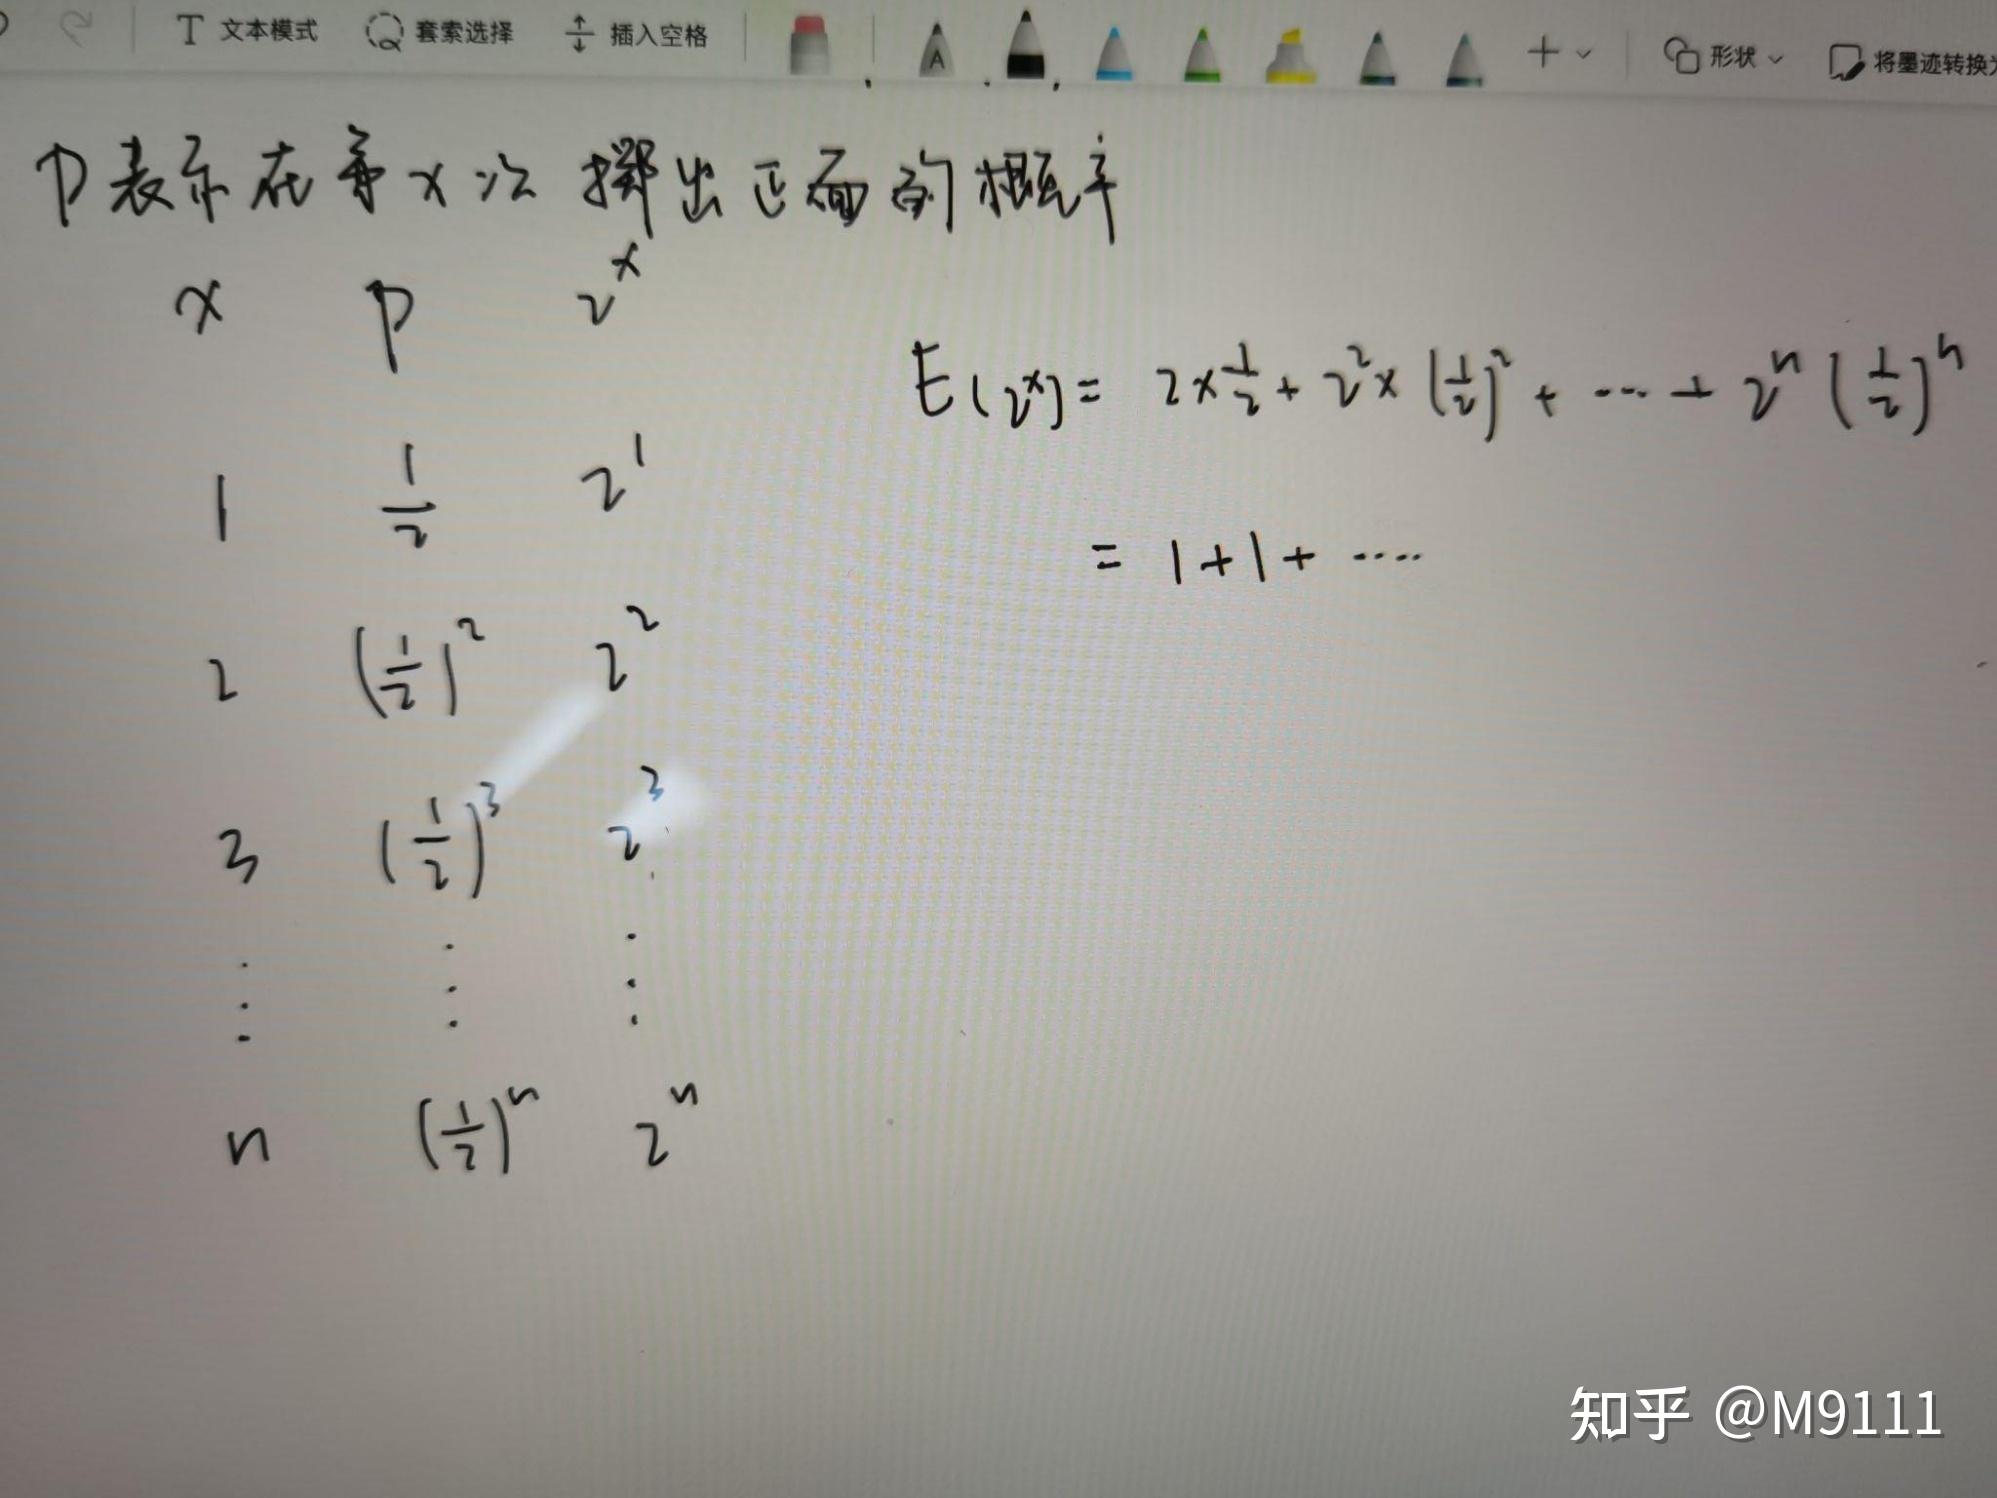 T 文本模式 套索选择 插入空格 A 形状 将墨迹转换为
P表示在第x次掷出正面的概率
x P 2^x
E(2^x) = 2×1/2 + 2^2×(1/2)^2 + ... + 2^n(1/2)^n
1 1/2 2^1
= 1+1+ ....
2 (1/2)^2 2^2
3 (1/2)^3 2^3
⋮ ⋮ ⋮
n (1/2)^n 2^n
知乎 @M9111